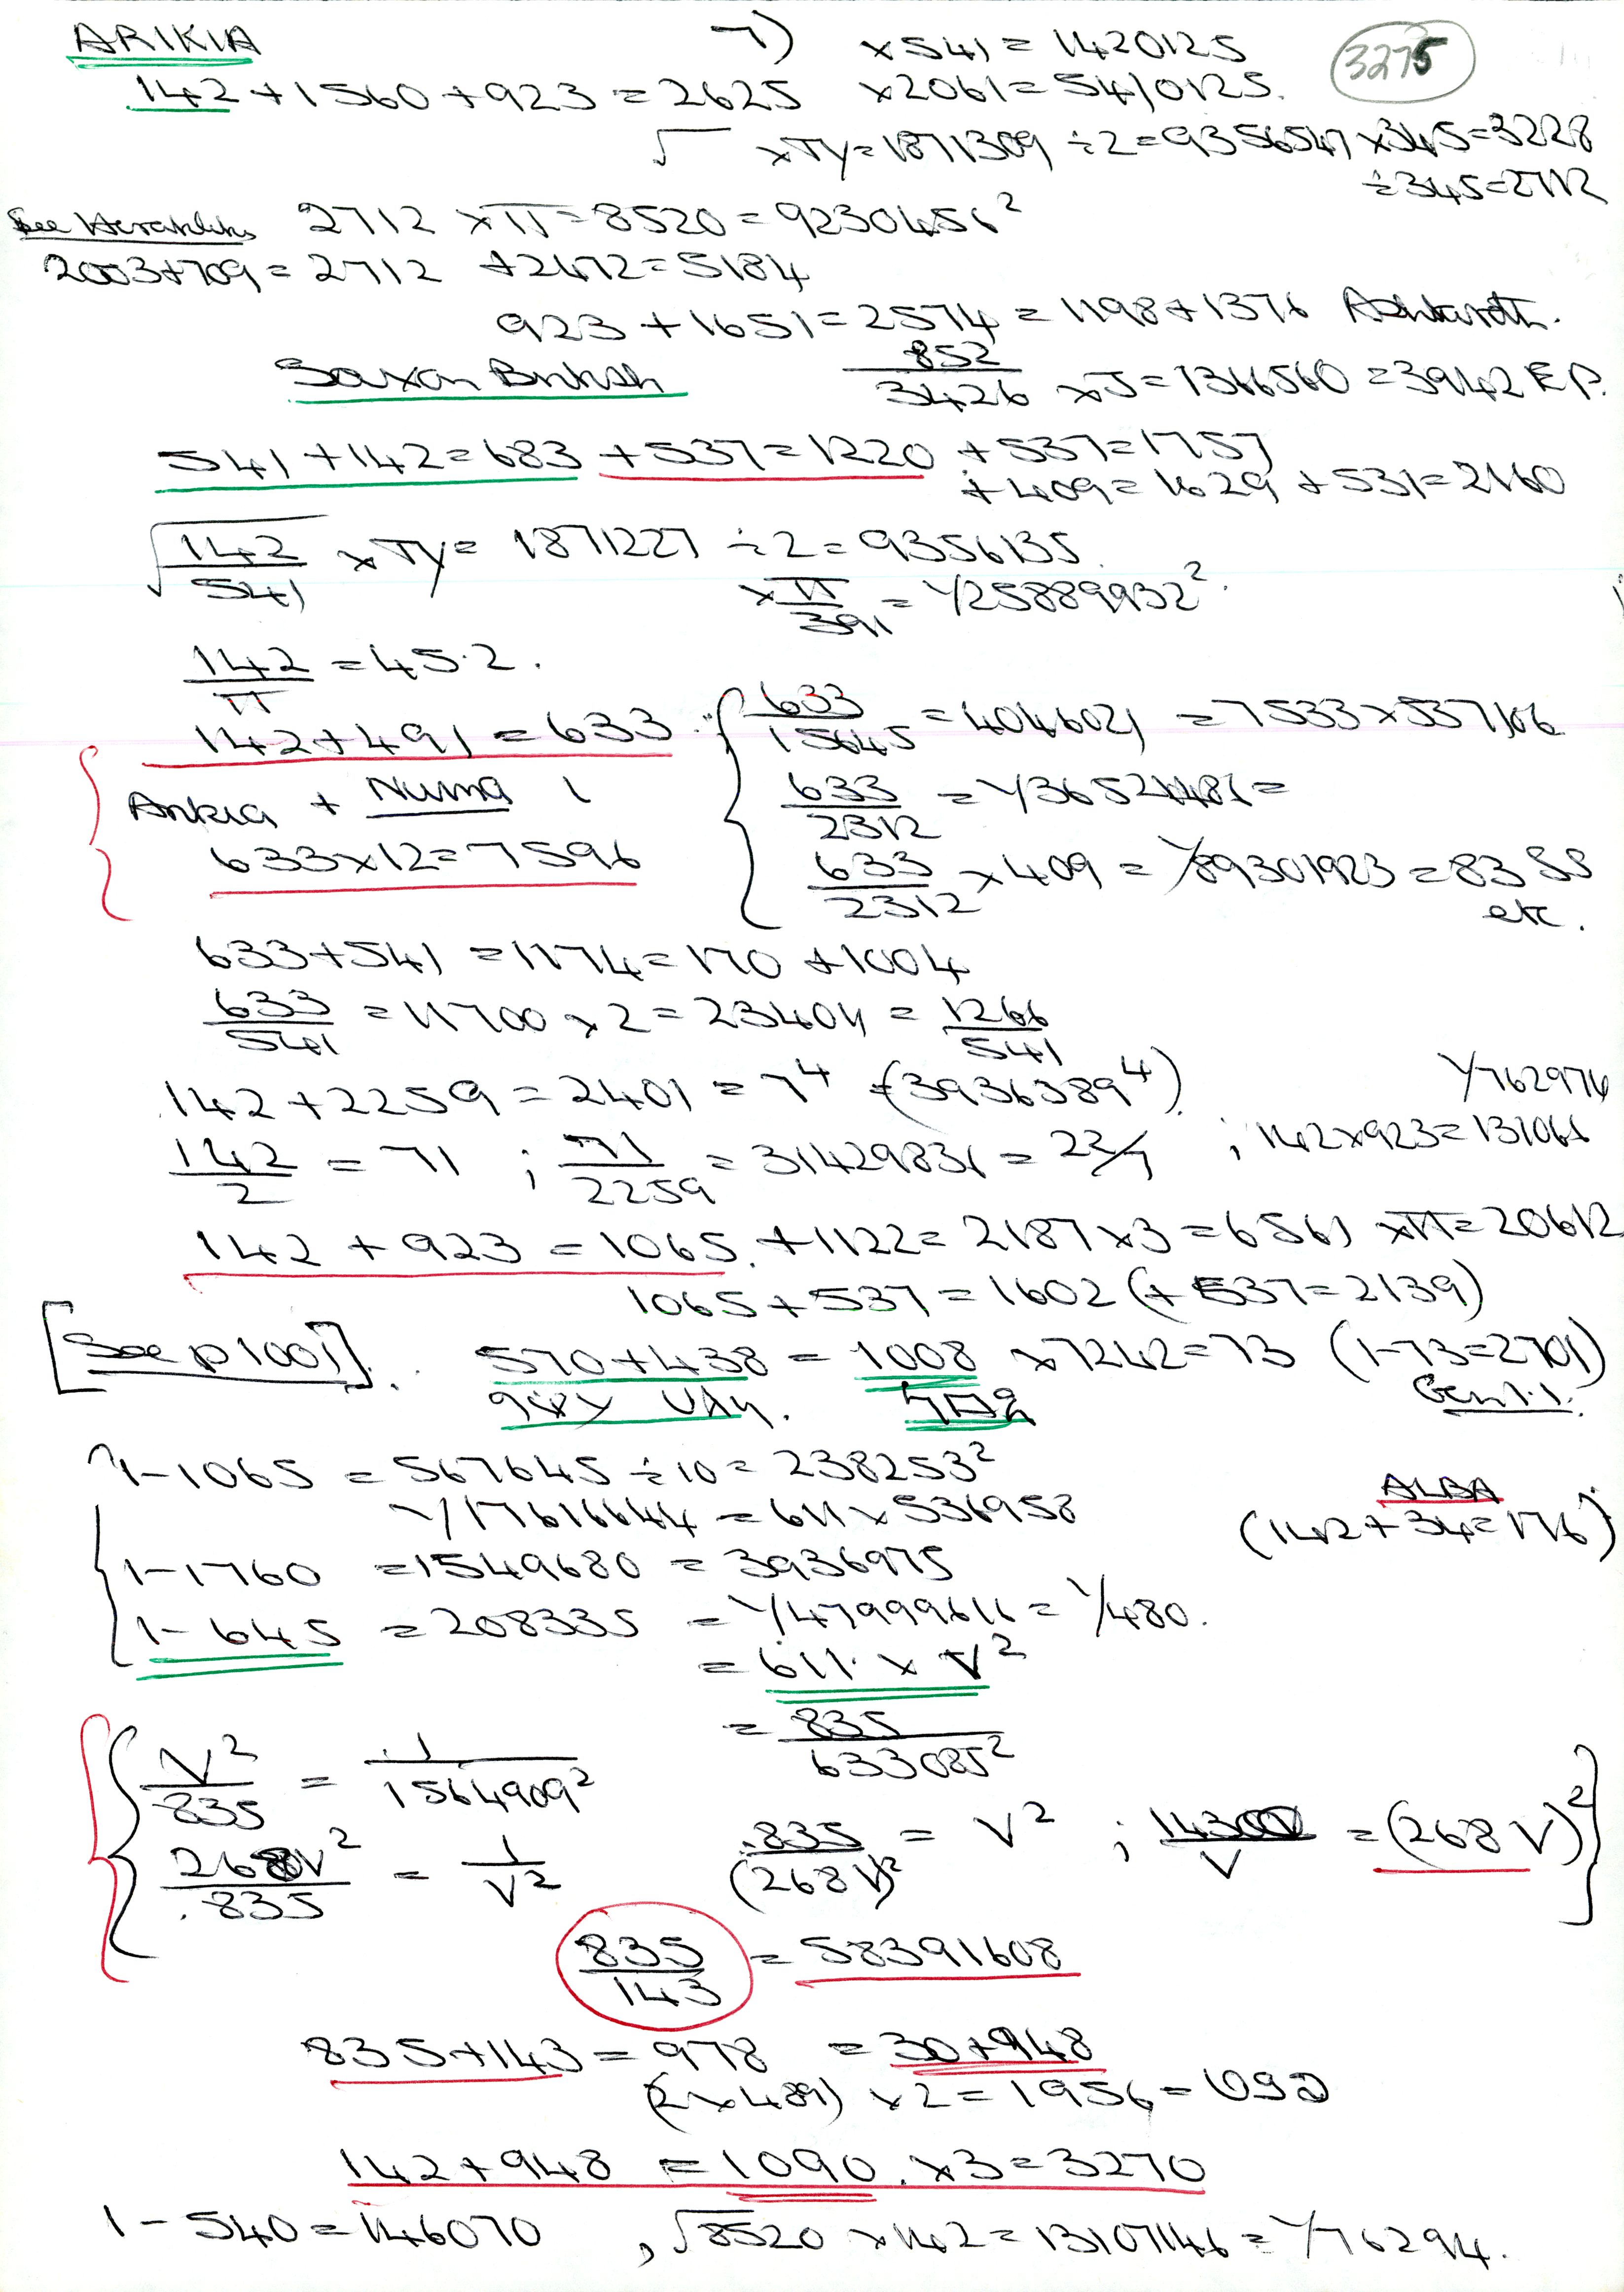 ARIKIA 7) ×541 = 1420125 3275
142 + 1560 + 923 = 2625 ×2061 = 5410125.
√ ×Ty = 1871309 ÷2 = 9356547 ×345 = 3228
÷345 = 2712
See Herakleitos 2712 ×π = 8520 = 9230456²
2003+709 = 2712 +2472 = 5184
923 + 1651 = 2574 = 1198 + 1376 Ashtaroth.
Saxon British 852/3426 ×5 = 1366560 = 39142 EP.
541 + 142 = 683 + 537 = 1220 + 537 = 1757
+ 409 = 1629 + 531 = 2160
√142/541 ×Ty = 1871227 ÷2 = 9356135
×π/391 = 1/25889932².
142/π = 45.2.
142 + 491 = 633 633/15645 = 4046021 = 7533 × 537106
Arikia + Numa 633/2312 = 1/36521481 =
633×12 = 7596 633/2312 ×409 = 1/89301923 = 83 SS
etc.
633+541 = 1174 = 170 + 1004
633/541 = 11700 × 2 = 23401 = 1266/541
142 + 2259 = 2401 = 7⁴ (3936389⁴) 1/762976
142/2 = 71 ; 71/2259 = 31429831 = 22/7 ; 142×923 = 131066
142 + 923 = 1065. + 1122 = 2187 ×3 = 6561 ×π = 20612
1065 + 537 = 1602 (+537 = 2139)
[See p1001]. 570 + 438 = 1008 ×7242 = 73 (1-73 = 2701)
Gen 1.1.
1-1065 = 567645 ÷10 = 238253²
1/17616644 = 611 × 536958 ALBA
(142 + 34 = 176)
1-1760 = 1549680 = 3936975
1-645 = 208335 = 1/47999616 = 1/480.
= 611. × V²
= 835/633085²
V²/835 = 1/1564909²
268V²/.835 = 1/V² .835/(268V)² = V² ; 14300/V = (268V)²
835/143 = 58391608
835+143 = 978 = 30+948
(2×489) ×2 = 1956 =
142+948 = 1090. ×3 = 3270
1-540 = 146070 , √8520 ×142 = 13107146 = 1/76294.